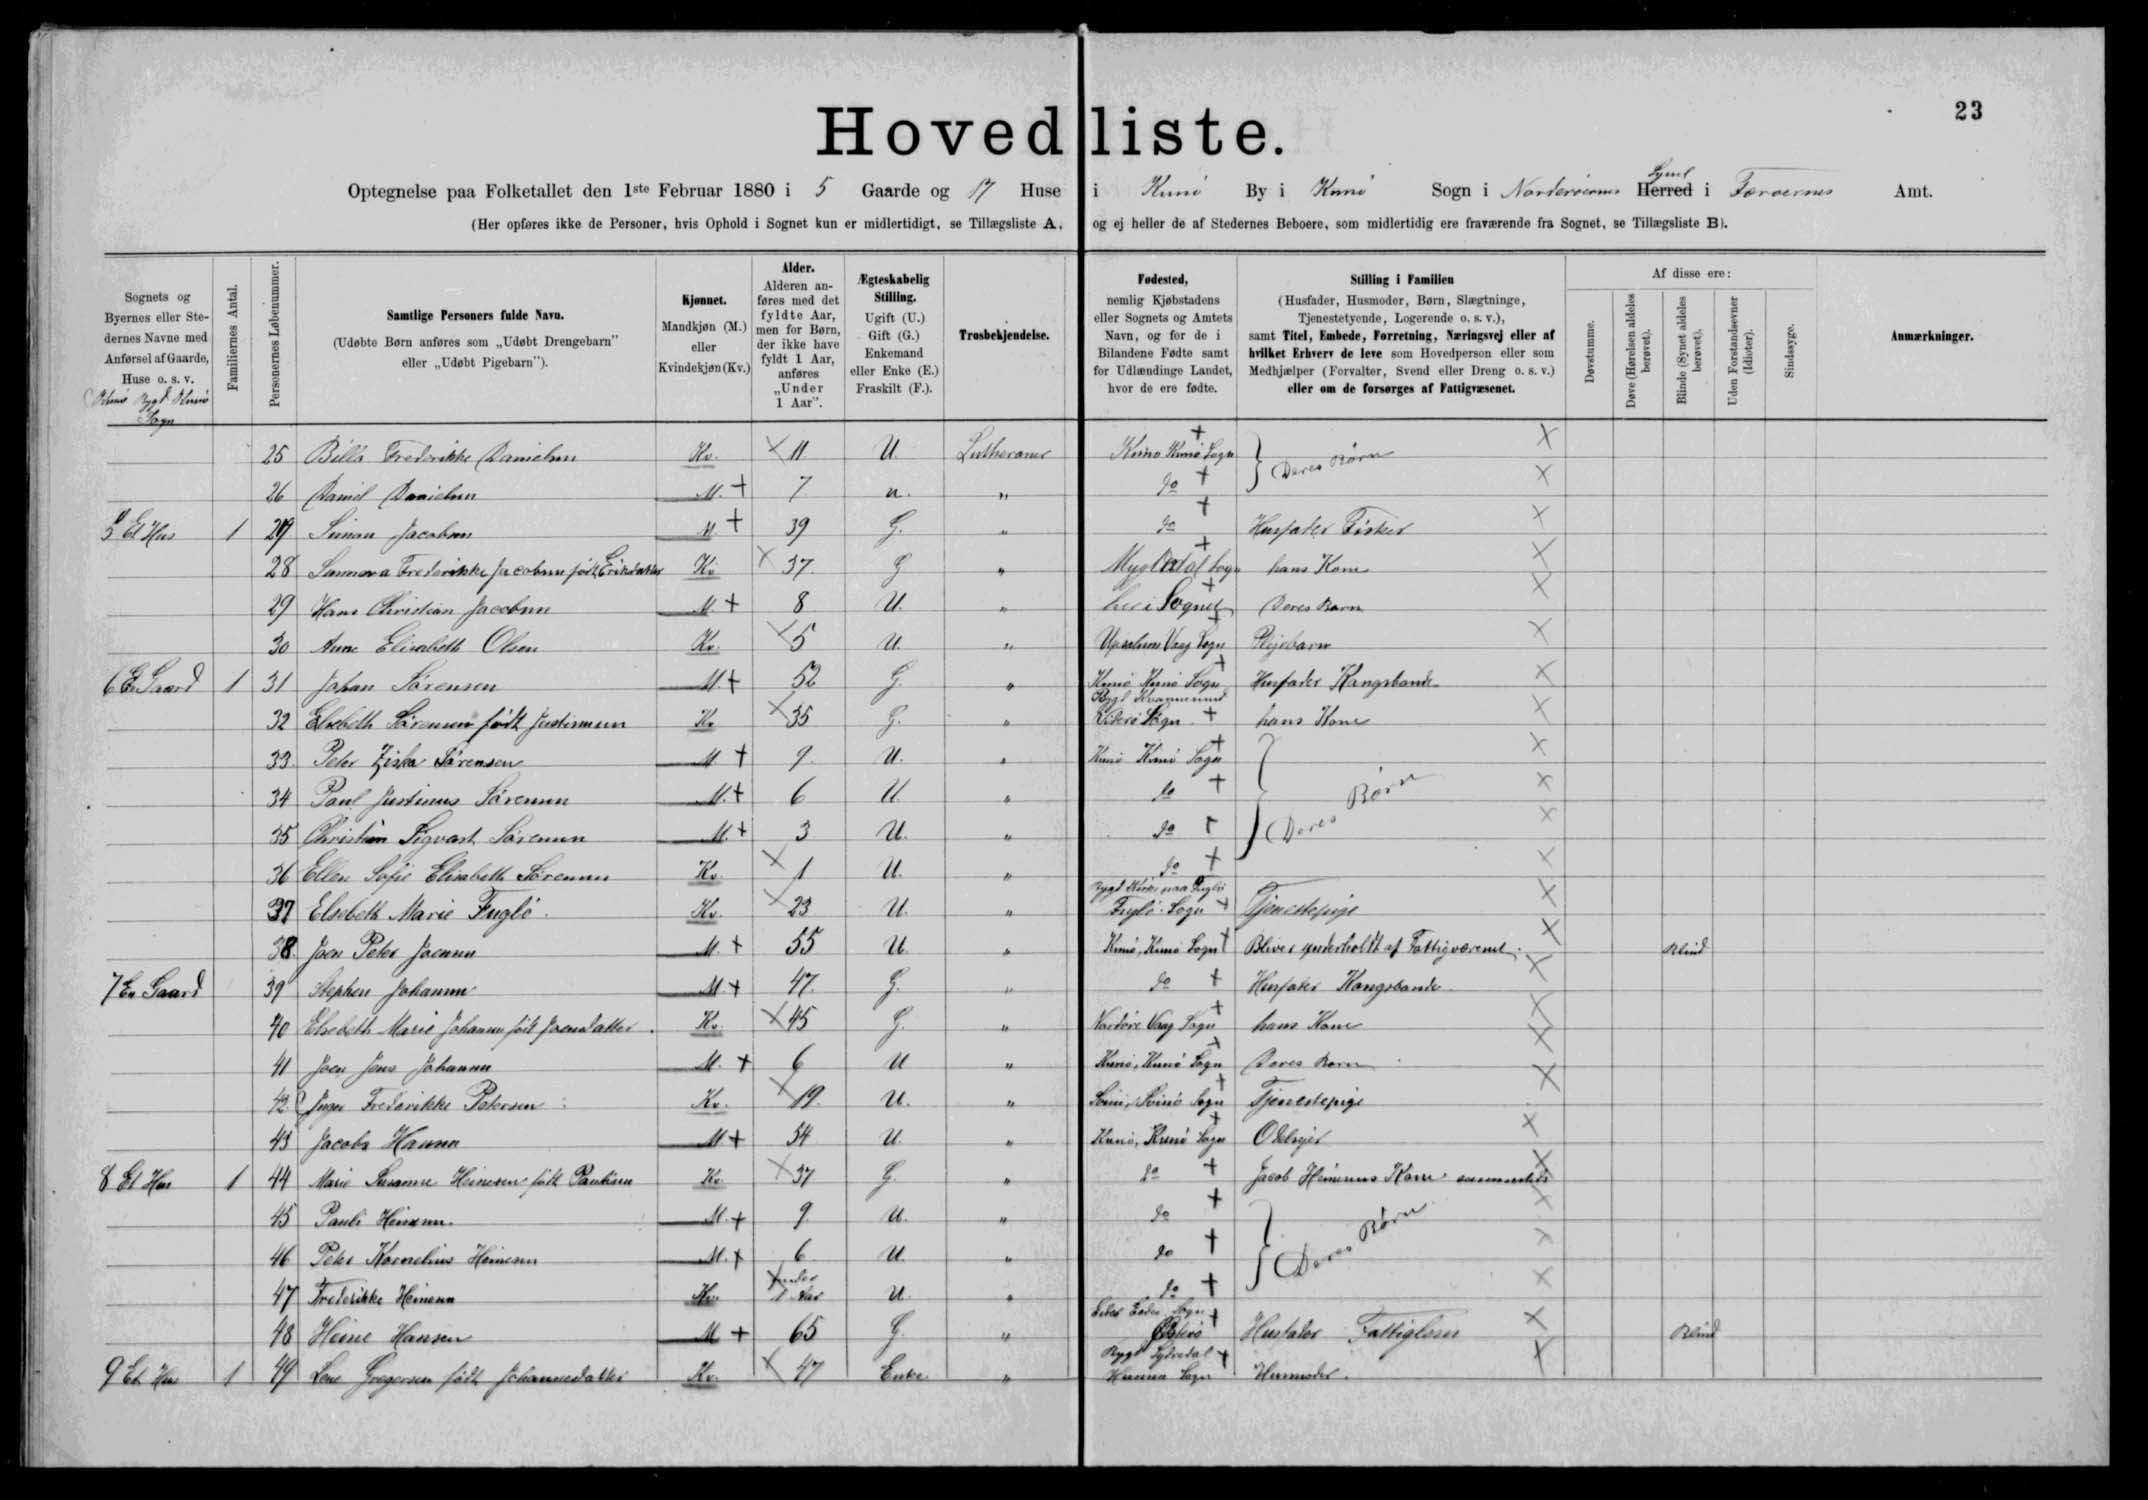 23
Hovedliste.
Optegnelse paa Folketallet den 1ste Februar 1880 i 5 Gaarde og 17 Huse i Kunø By i Kunø Sogn i Norderøernes Syssel Herred i Færøernes Amt.
(Her opføres ikke de Personer, hvis Ophold i Sognet kun er midlertidigt, se Tillægsliste A, og ej heller de af Stedernes Beboere, som midlertidig ere fraværende fra Sognet, se Tillægsliste B).
Sognets og Byernes eller Stedernes Navne med Anførsel af Gaarde, Huse o. s. v.
Familiernes Antal.
Personernes Løbenummer.
Samtlige Personers fulde Navn.
(Udøbte Børn anføres som „Udøbt Drengebarn" eller „Udøbt Pigebarn").
Kjønnet.
Mandkjøn (M.) eller Kvindekjøn (Kv.)
Alder.
Alderen anføres med det fyldte Aar, men for Børn, der ikke have fyldt 1 Aar, anføres „Under 1 Aar".
Ægteskabelig Stilling.
Ugift (U.) Gift (G.) Enkemand eller Enke (E.) Fraskilt (F.).
Trosbekjendelse.
Fødested,
nemlig Kjøbstadens eller Sognets og Amtets Navn, og for de i Bilandene Fødte samt for Udlændinge Landet, hvor de ere fødte.
Stilling i Familien
(Husfader, Husmoder, Børn, Slægtninge, Tjenestetyende, Logerende o. s. v.), samt Titel, Embede, Forretning, Næringsvej eller af hvilket Erhverv de leve som Hovedperson eller som Medhjælper (Forvalter, Svend eller Dreng o. s. v.) eller om de forsørges af Fattigvæsenet.
Af disse ere:
Døvstumme.
Døve (Hørelsen aldeles berøvet).
Blinde (Synet aldeles berøvet).
Uden Forstandsevner (Idioter).
Sindssyge.
Anmærkninger.
Kunø Bygd Kunø Sogn
25 Billa Frederikke Danielsen Kv. 11 U. Lutheraner Kunø Kunø Sogn } Deres Børn
26 Daniel Danielsen M. 7 U. " do
5 Et Hus 1 27 Simon Jacobsen M 39 G. " do Husfader Fisker
28 Sunneva Frederikke Jacobsen født Eriksdatter Kv 37 G " Mygledal Sogn hans Kone
29 Hans Christian Jacobsen M. 8 U. " her i Sognet Deres Barn
30 Anne Elisabeth Olsen Kv. 5 U. " Vaag Sogn Plejebarn
6 En Gaard 1 31 Johan Sørensen M. 52 G. " Kunø Kunø Sogn Husfader Kongsbonde
32 Elsebeth Sørensen født Justinsen Kv 35 G. " Bygd Kvannesund Viderø Sogn hans Kone
33 Peter Ziska Sørensen M. 9 U. " Kunø Kunø Sogn } Deres Børn
34 Paul Justinus Sørensen M. 6 U. " do
35 Christian Sigvart Sørensen M. 3 U. " do
36 Ellen Sofie Elisabeth Sørensen Kv. 1 U. " do
37 Elsebeth Marie Fuglø Kv. 23 U. " Bygd Kirke paa Fuglø Fuglø Sogn Tjenestepige
38 Joen Peter Joensen M. 55 U. " Kunø, Kunø Sogn Bliver underholdt af Fattigvæsenet. Blind
7 En Gaard 39 Stephen Johansen M. 47 G. " do Husfader Kongsbonde
40 Elsebeth Marie Johansen født Joensdatter Kv. 45 G. " Vaag Sogn hans Kone
41 Joen Jens Johansen M. 6 U " Kunø, Kunø Sogn Deres Barn
42 Inger Frederikke Petersen Kv. 19. U. " Svinø, Svinø Sogn Tjenestepige
43 Jacob Hansen M 54 U. " Kunø, Kunø Sogn Odelsejer
8 Et Hus 1 44 Marie Susanne Heinesen født Poulsen Kv. 37 G. " do Jacob Heinesens Kone
45 Pauli Heinesen M. 9 U. " do } Deres Børn
46 Peter Kornelius Heinesen M. 6 U. " do
47 Frederikke Heinesen Kv. under 1 Aar U. " do
48 Heine Hansen M 65 G. " Eides Sogn Østerø Husfader Fattiglem Blind
9 Et Hus 1 49 Lene Gregersen født Johannesdatter Kv. 47 Enke " Bygd Sydredal Husmoder.